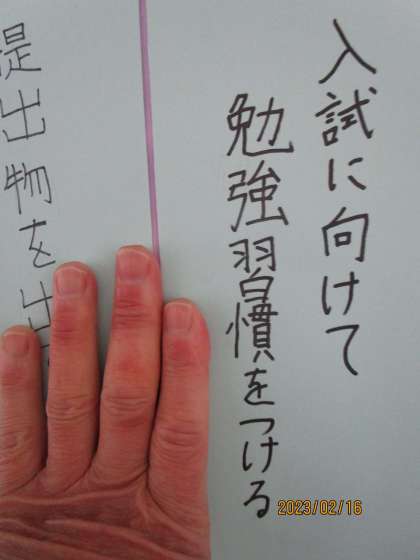 入試に向けて
勉強習慣をつける
提出物を出
2023/02/16